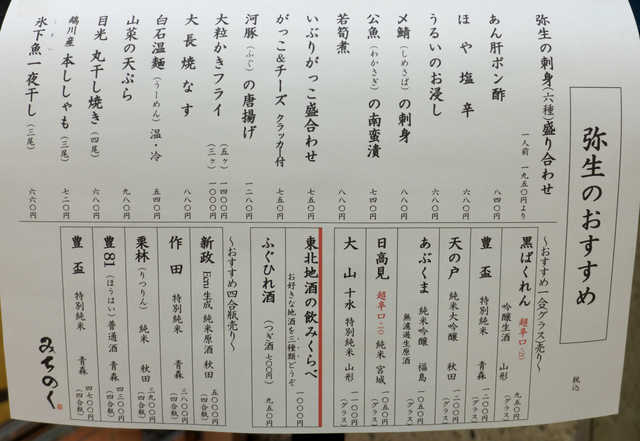 弥生のおすすめ
税込
弥生の刺身(六種)盛り合わせ
一人前 一九五〇円より
あん肝ポン酢 八四〇円
ほや塩辛 六六〇円
うるいのお浸し 六八〇円
〆鯖(しめさば)の刺身 八八〇円
公魚(わかさぎ)の南蛮漬 七四〇円
若筍煮 八八〇円
いぶりがっこ盛合わせ 七五〇円
がっこ&チーズ クラッカー付 七五〇円
河豚(ふぐ)の唐揚げ 一〇八〇円
大粒かきフライ (五ヶ) 一四〇〇円
(三ヶ) 一〇〇〇円
大長焼なす 八八〇円
白石温麺(うーめん)温・冷 五四〇円
山菜の天ぷら 九八〇円
目光 丸干し焼き(四尾) 六八〇円
鵡川産 本ししゃも(三尾) 七二〇円
氷下魚一夜干し(三尾) 六六〇円
〜おすすめ一合(グラス)売り〜
黒ばくれん 超辛口
吟醸生酒 山形 九五〇円(グラス)
豊盃 特別純米 青森 一二〇〇円(グラス)
天の戸 純米大吟醸 秋田 一二〇〇円(グラス)
あぶくま 純米吟醸 福島 一〇五〇円(グラス)
無濾過生原酒
日高見 超辛口 純米 宮城 一〇五〇円(グラス)
大山 十水 特別純米 山形 一〇〇〇円(グラス)
東北地酒の飲みくらべ
お好きな地酒を三種類どうぞ 一〇〇〇円
ふぐひれ酒(つぎ酒 七〇〇円) 九五〇円
〜おすすめ四合瓶売り〜
新政 Ecru 生成 純米原酒 秋田 五〇〇〇円(四合瓶)
作田 特別純米 青森 三八〇〇円(四合瓶)
栗林(りつりん) 純米 秋田 三九〇〇円(四合瓶)
豊81(ほうはい)普通酒 青森 四三〇〇円(四合瓶)
豊盃 特別純米 青森 四七〇〇円(四合瓶)
みちのく